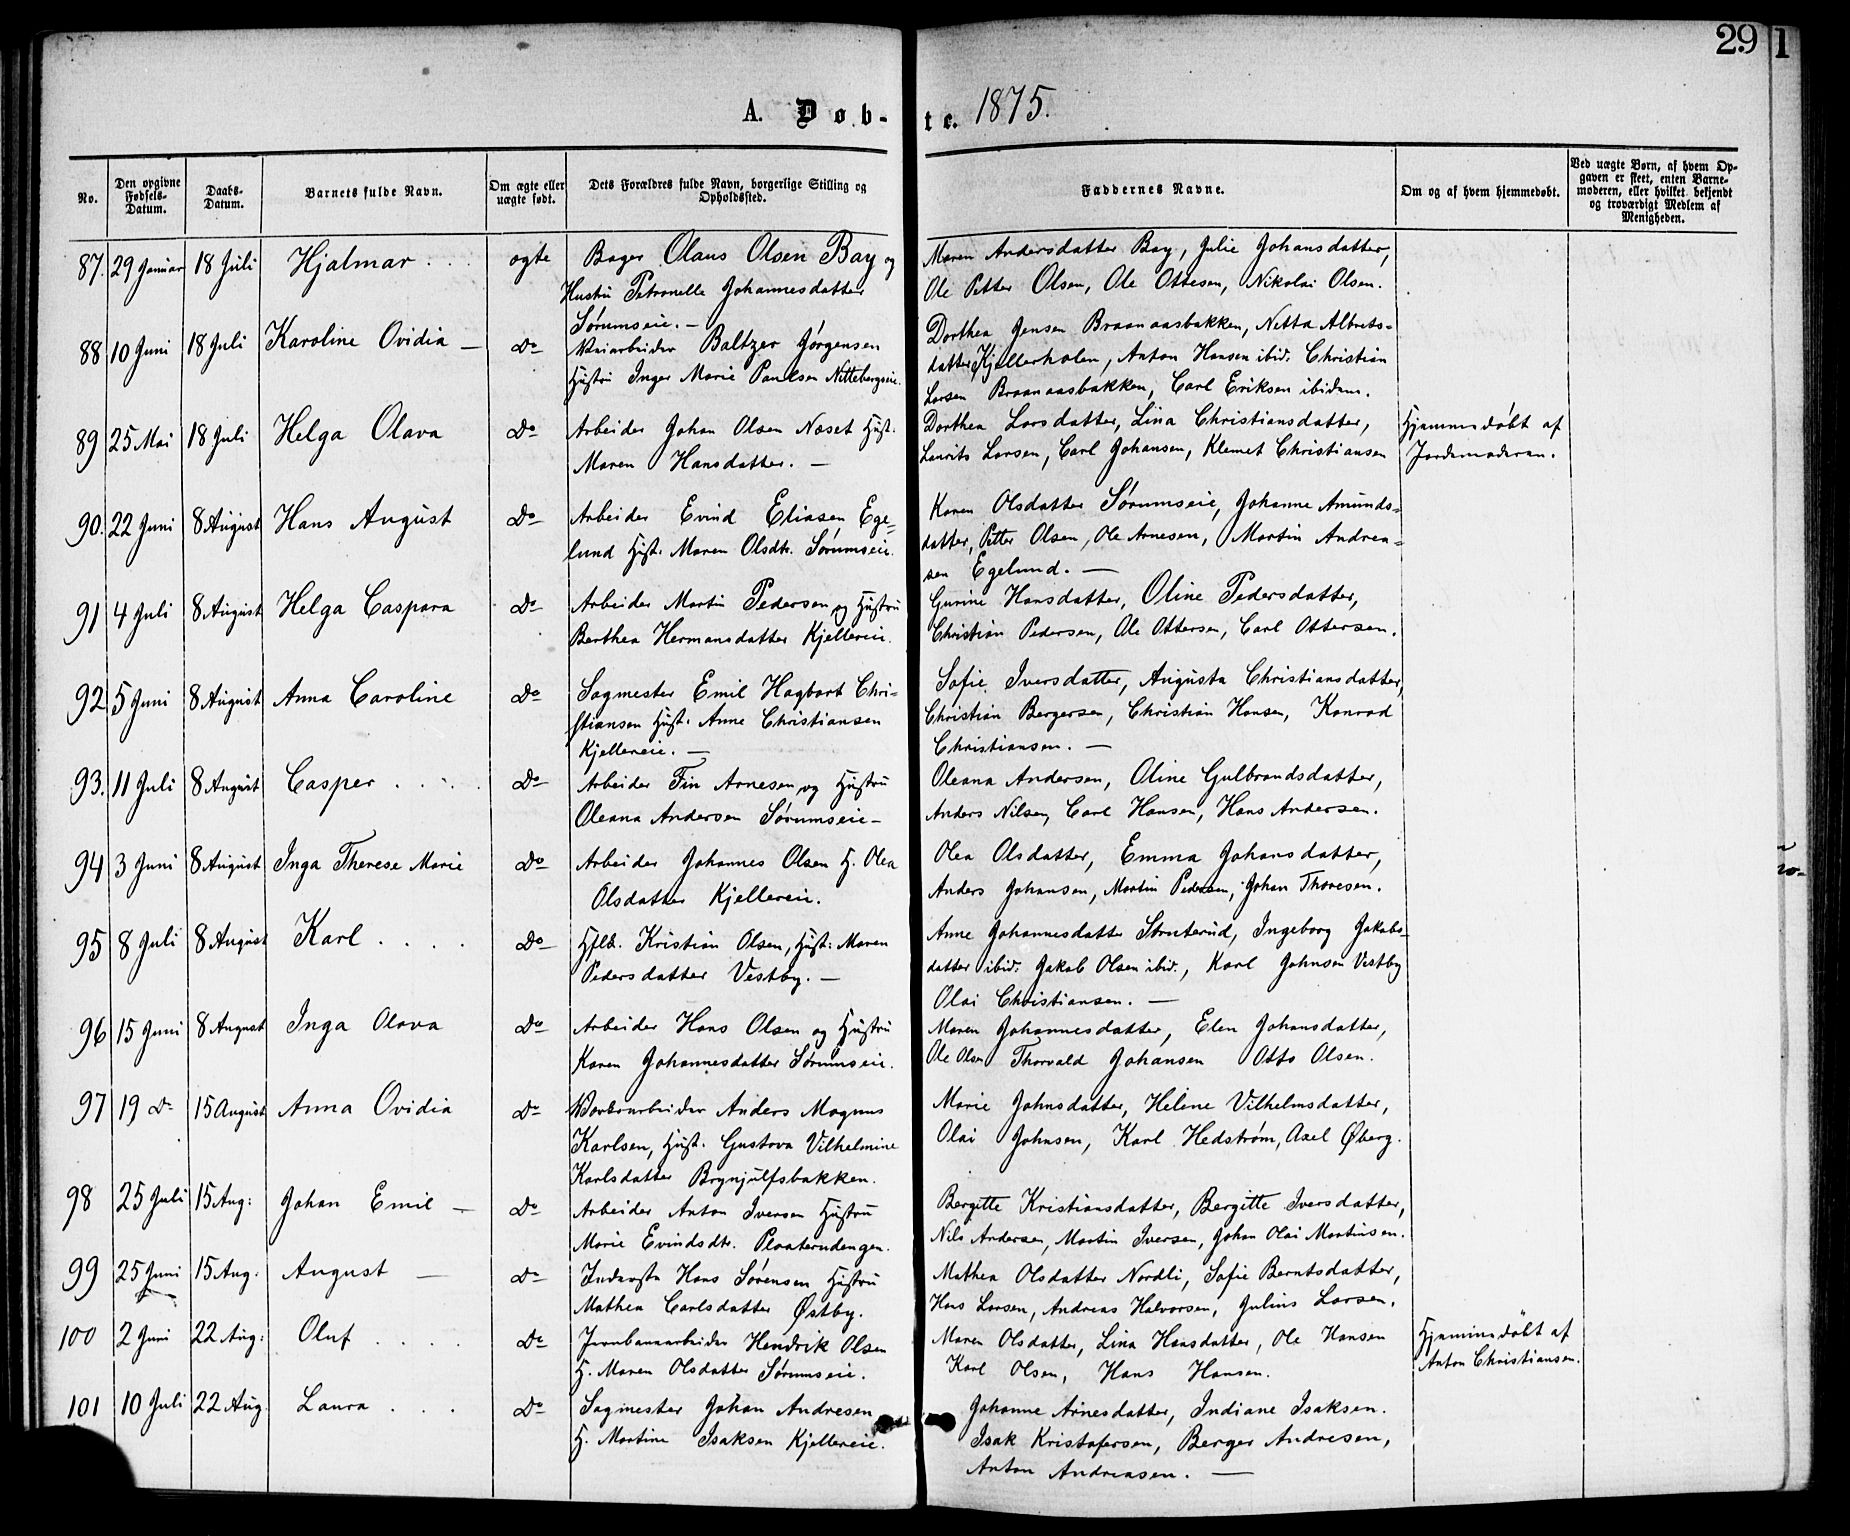 29
A. Døb-te. 1875.
No.
Den opgivne Fødsels-Datum.
Daabs-Datum.
Barnets fulde Navn.
Om ægte eller uægte født.
Dets Forældres fulde Navn, borgerlige Stilling og Opholdssted.
Faddernes Navne.
Om og af hvem hjemmedøbt.
Ved uægte Børn, af hvem Opgaven er skeet, enten Barnemoderen, eller hvilket bekjendt og troværdigt Medlem af Menigheden.
87. 29 Januar 18 Juli Hjalmar . . . ægte Bager Olaus Olsen Bay og
Hustru Petronelle Johannesdatter
Sørumseie. —
Maren Andersdatter Bay, Julie Johansdatter,
Ole Petter Olsen, Ole Ottesen, Nikolai Olsen.
88 10 Juni 18 Juli Karoline Ovidia — Do Veiarbeider Baltzer Jørgensen
Hustru Inger Marie Paulsen Nittebergseie.
Dorthea Jensen Braanaasbakken, Netta Albrets-
datter Kjellerholen, Anton Hansen ibid. Christian
Larsen Braanaasbakken, Carl Eriksen ibidem.
89 25 Mai 18 Juli Helga Olava Do Arbeider Johan Olsen Næset Hust.
Maren Hansdatter. —
Dorthea Larsdatter, Lina Christiansdatter,
Laurits Larsen, Carl Johansen, Klemet Christiansen
Hjemmedøbt af
Jordemoderen.
90. 22 Juni 8 August Hans August Do Arbeider Evind Eliasen Ege-
lund Hust. Maren Olsdtr. Sørumseie.
Karen Olsdatter Sørumseie, Johanne Amunds-
datter, Petter Olsen, Ole Arnesen, Martin Andrea-
sen Egelund. —
91 4 Juli 8 August Helga Caspara Do Arbeider Martin Pedersen og Hustru
Berthea Hermansdatter Kjellereie.
Gurine Hansdatter, Oline Pedersdatter,
Christian Pedersen, Ole Ottersen, Carl Ottersen.
92 5 Juni 8 August Anna Caroline Do Sagmester Emil Hagbart Chri-
stiansen Hust. Anne Christiansen
Kjellereie. —
Sofie Iversdatter, Augusta Christiansdatter,
Christian Bergersen, Christian Hansen, Konrad
Christiansen. —
93. 11 Juli 8 August Casper . . . . Do Arbeider Fin Arnesen og Hustru
Oleana Andersen Sørumseie —
Oleana Andersen, Oline Gulbrandsdatter,
Anders Nilsen, Carl Hansen, Hans Andersen.
94 3 Juni 8 August Inga Therese Marie Do Arbeider Johannes Olsen H. Olea
Olsdatter Kjellereie.
Olea Olsdatter, Emma Johansdatter,
Anders Johansen, Martin Pedersen, Johan Thoresen.
95 8 Juli 8 August Karl . . . . Do Hflb. Kristian Olsen, Hust: Maren
Pedersdatter Vestby. —
Anne Johannesdatter Struterud, Ingeborg Jakobs-
datter ibid. Jakob Olsen ibid., Karl Johnsen Vestby
Olai Christiansen. —
96 15 Juni 8 August Inga Olava Do Arbeider Hans Olsen og Hustru
Karen Johannesdatter Sørumseie.
Maren Johannesdatter, Elen Johansdatter,
Ole Olsen Thorvald Johansen Otto Olsen.
97 19 Do 15 August Anna Ovidia Do Værksarbeider Anders Magnus
Karlsen, Hust. Gustava Vilhelmine
Karlsdatter Brynjulfsbakken.
Marie Johnsdatter, Helene Vilhelmsdatter,
Olai Johnsen, Karl Hedstrøm, Axel Øberg.
98 25 Juli 15 Aug: Johan Emil — Do Arbeider Anton Iversen Hustru
Marie Evindsdtr. Plaaterudengen.
Bergitte Kristiansdatter, Bergitte Iversdatter,
Nils Andersen, Martin Iversen, Johan Olai Martinsen.
99 25 Juni 15 Aug. August — Do Inderste Hans Sørensen Hustru
Mathea Carlsdatter Østby.
Mathea Olsdatter Nordli, Sofie Berntsdatter,
Hans Larsen, Andreas Halvorsen, Julius Larsen.
100 2 Juni 22 Aug: Oluf . . . . Do Jernbanearbeider Hendrik Olsen
H. Maren Olsdatter Sørumseie.
Maren Olsdatter, Lina Hansdatter, Ole Hansen
Karl Olsen, Hans Hansen.
Hjemmedøbt af
Anton Christiansen.
101 10 Juli 22 Aug. Laura . . . Do Sagmester Johan Andresen
H. Martine Isaksen Kjellereie.
Johanne Arnesdatter, Indiane Isaksen.
Isak Kristofersen, Berger Andresen,
Anton Andreasen. —